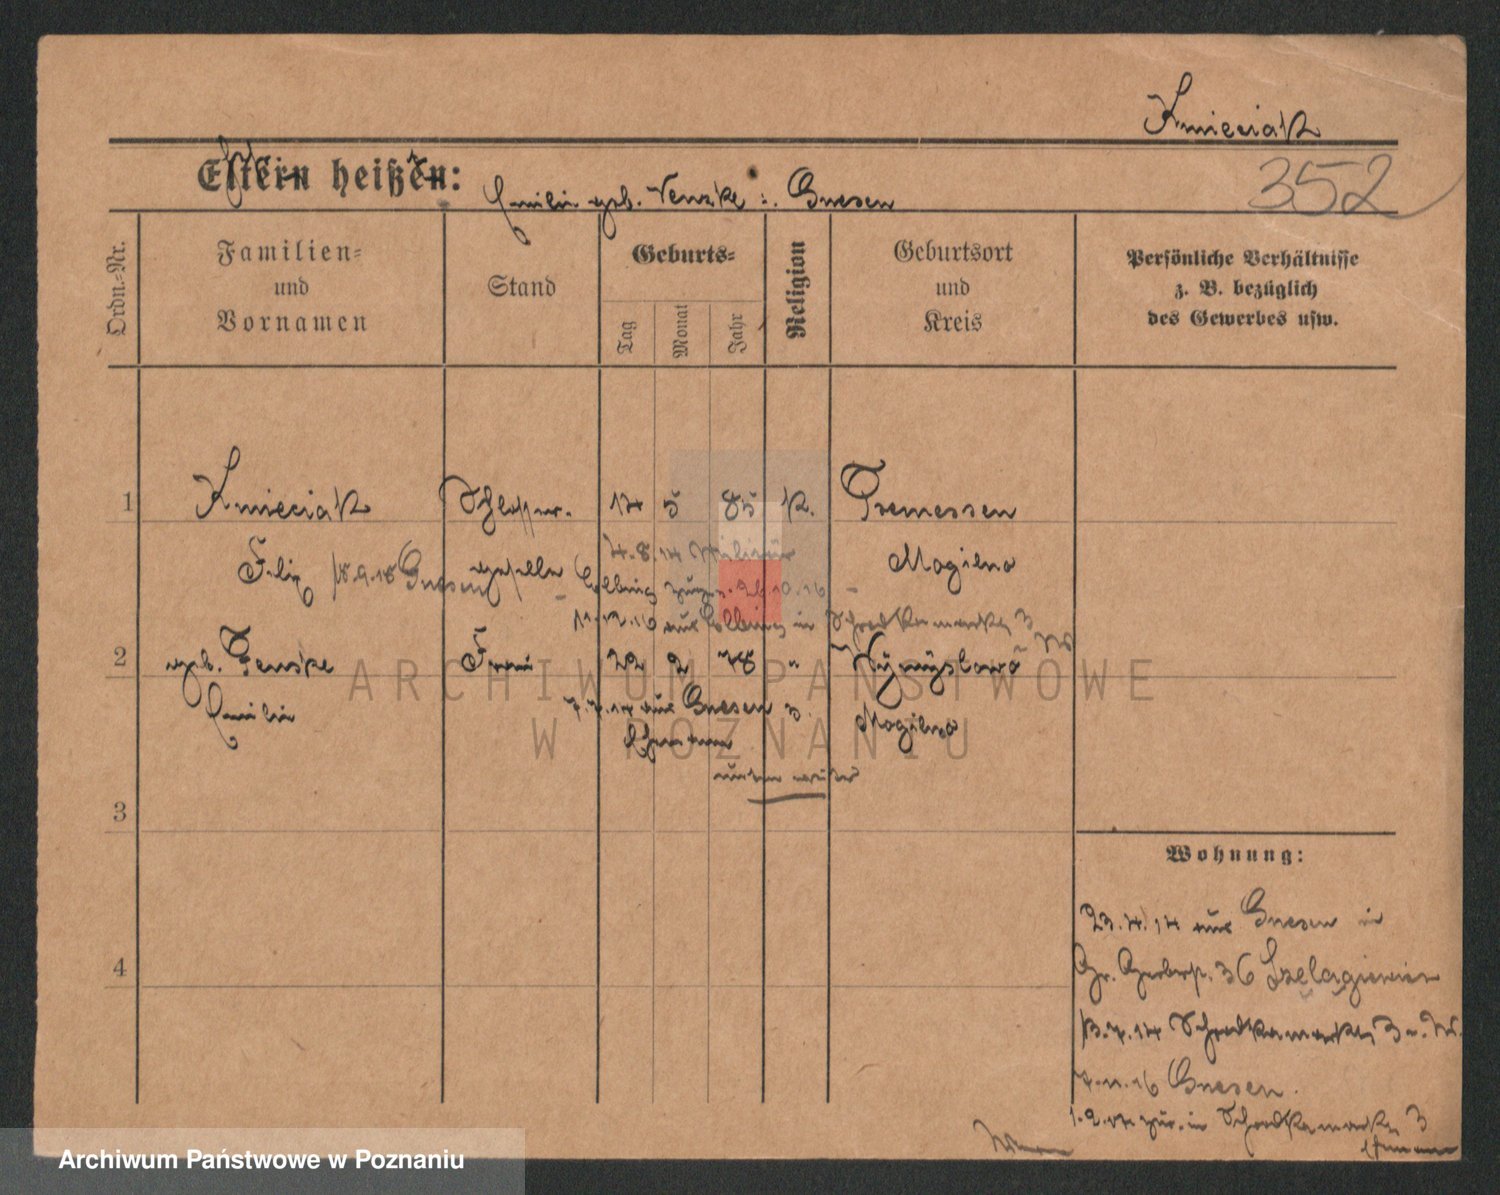 Kmieciak
352
Eltern heißen:
Emilie geb. Venzke Gnesen
Ordn.-Nr.
Familien-
und
Vornamen
Stand
Geburts-
Tag
Monat
Jahr
Religion
Geburtsort
und
Kreis
Persönliche Verhältnisse
z. B. bezüglich
des Gewerbes usw.
1
Kmieciak
Schlosser-
17 5 85 k.
Tremessen
4.8.14 Militär
Felix
18.9.18 Gnesen
geselle
Mogilno
Colberg 26.10.16
11.12.16 aus Colberg in Schrodkamarkt 3
2
geb. Fenske
Frau
22 2 78 "
Emilie
7.7.14 aus Gnesen z.
Mogilno
Ehemann
3
4
Wohnung:
23.4.14 aus Gnesen in
Gr. Gerberstr. 36 Szelagiewicz
13.7.14 Schrodkamarkt 3
7.11.16 Gnesen.
1.2.17 zur. in Schrodkamarkt 3
ARCHIWUM PAŃSTWOWE
W POZNANIU
Archiwum Państwowe w Poznaniu